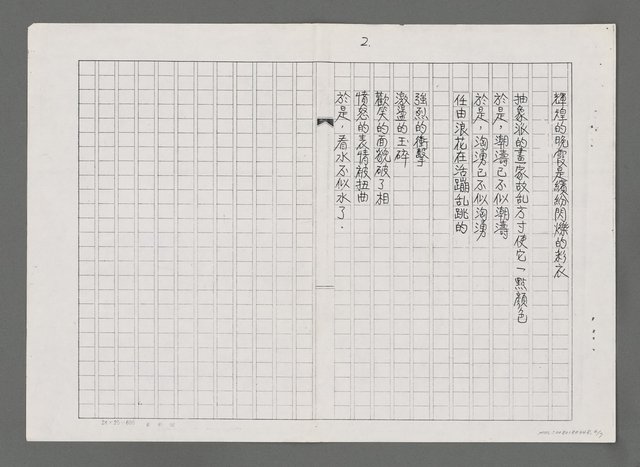 2.
輝煌的晚霞是繽紛閃爍的彩衣
抽象派的畫家故乱方寸使它一點顏色
於是，潮濤已不似潮濤
於是，洶湧已不似洶湧
任由浪花在活蹦乱跳的
強烈的衝擊
激盪的玉碎
歡笑的面貌破了相
憤怒的表情被扭曲
於是，看水不似水了．